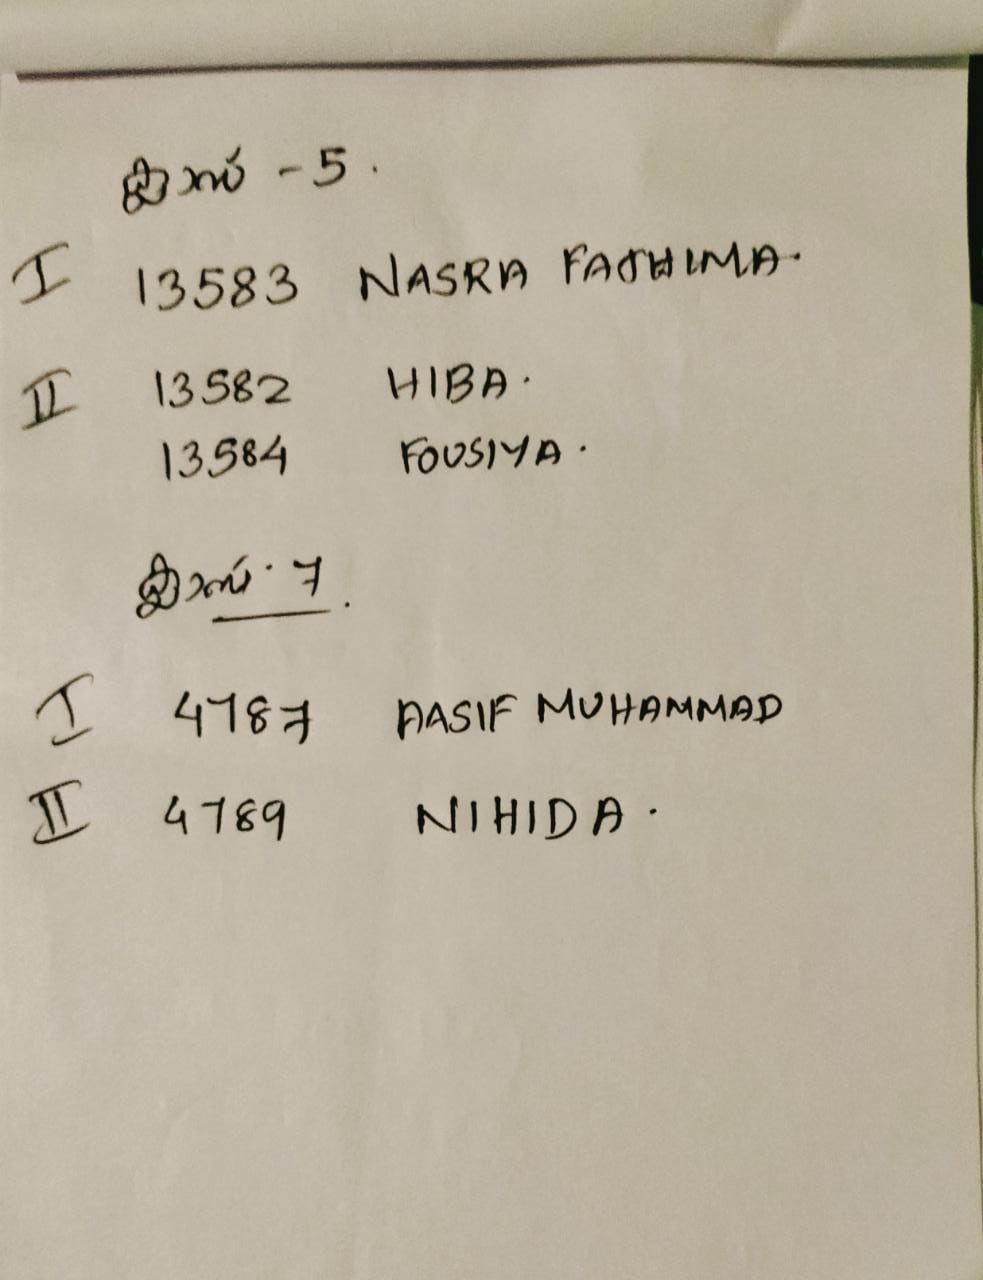 ക്ലാസ് - 5.
I 13583 NASRA FATHIMA.
II 13582 HIBA.
13584 FOUSIYA.
ക്ലാസ്. 7.
I 4787 AASIF MUHAMMAD
II 4789 NIHIDA.